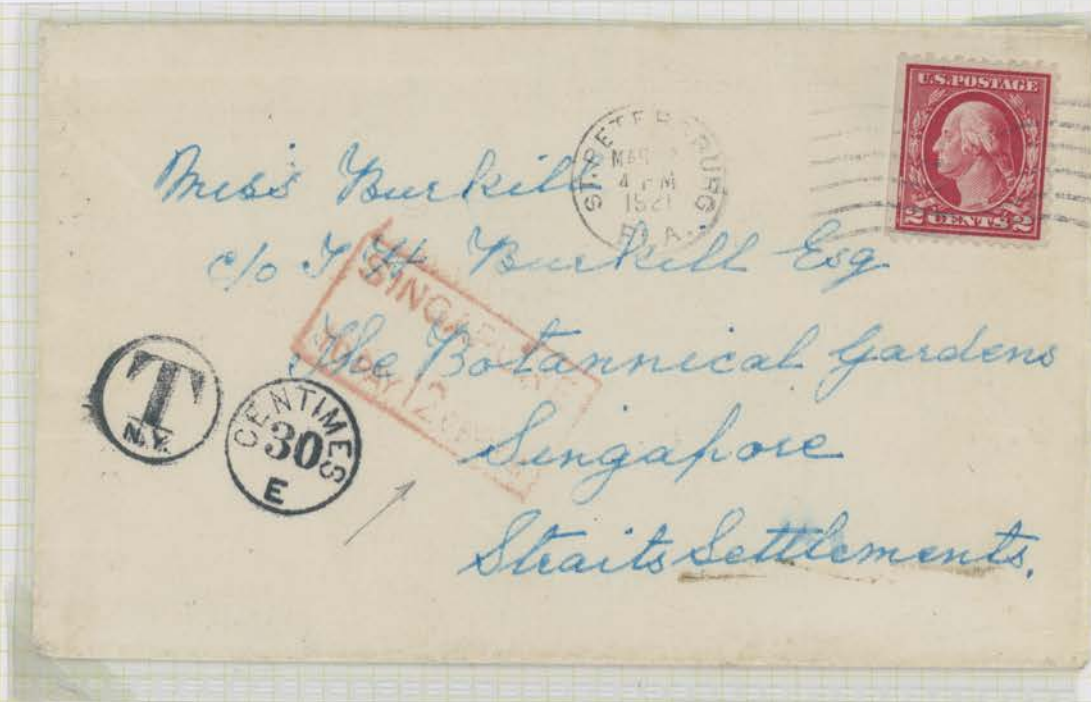 U.S. POSTAGE
2 CENTS 2
ST. PETERSBURG
MAR
4 PM
1921
FLA.
Miss Burkill
c/o I H Burkill Esq
The Botannical Gardens
Singapore
Straits Settlements.
SINGAPORE
TO PAY 12
T
N.Y.
CENTIMES
30
E